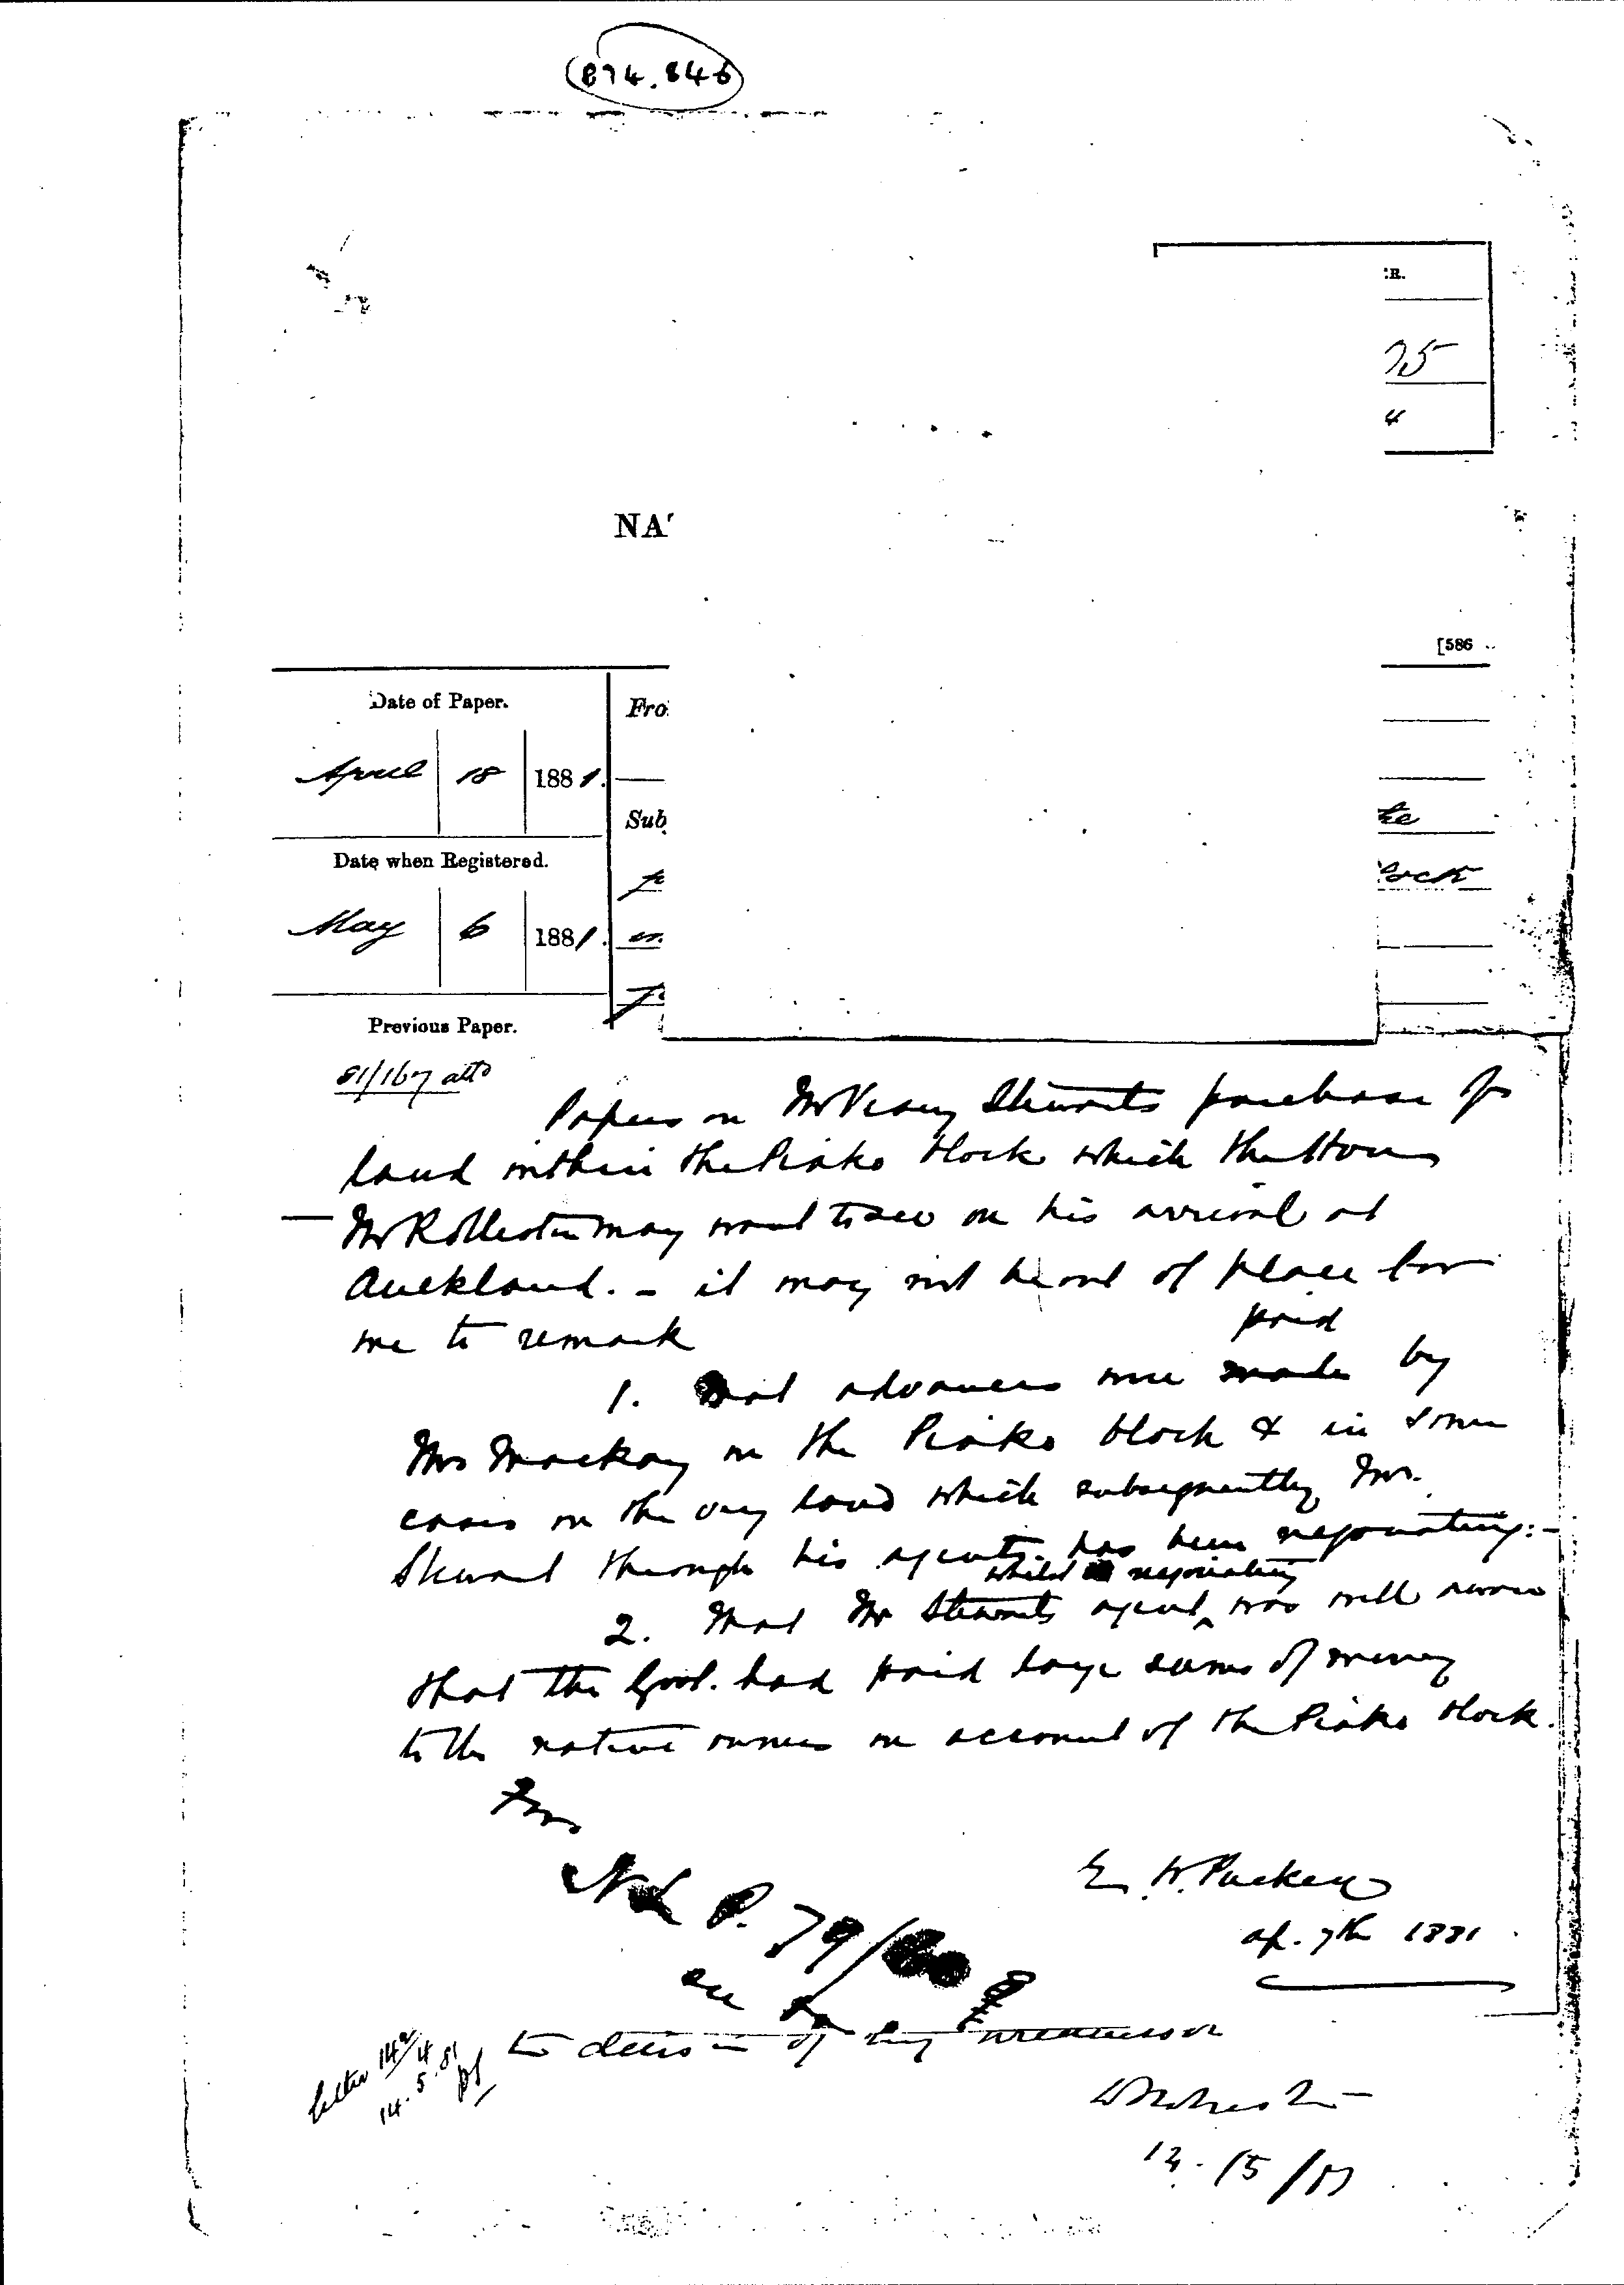 874.846
:R.
75
4
NA
[586
Date of Paper.
Fro
April 18 1881.
Sub
ke
Date when Registered.
lock
May 6 1881.
Previous Paper.
81/167 attd
Papers on Mr Vesey Stewarts purchase of
land within the Piako block which the Hon
Mr Rolleston may want to see on his arrival at
Auckland. - it may not be out of place for
me to remark
1. That advances were made paid by
Mr Mackay on the Piako block & in some
cases on the very land which subsequently Mr.
Stewart through his agents has been negotiating:-
2. That Mr Stewarts agent whilst negotiating was well aware
that the Govt. had paid large sums of money
to the native owners on account of the Piako block.
E. W. Puckey
ap. 7th 1881
N L P. 79/
see
to decision of my predecessor
letter 14/4
14.5.81
WRolleston
13./5/81